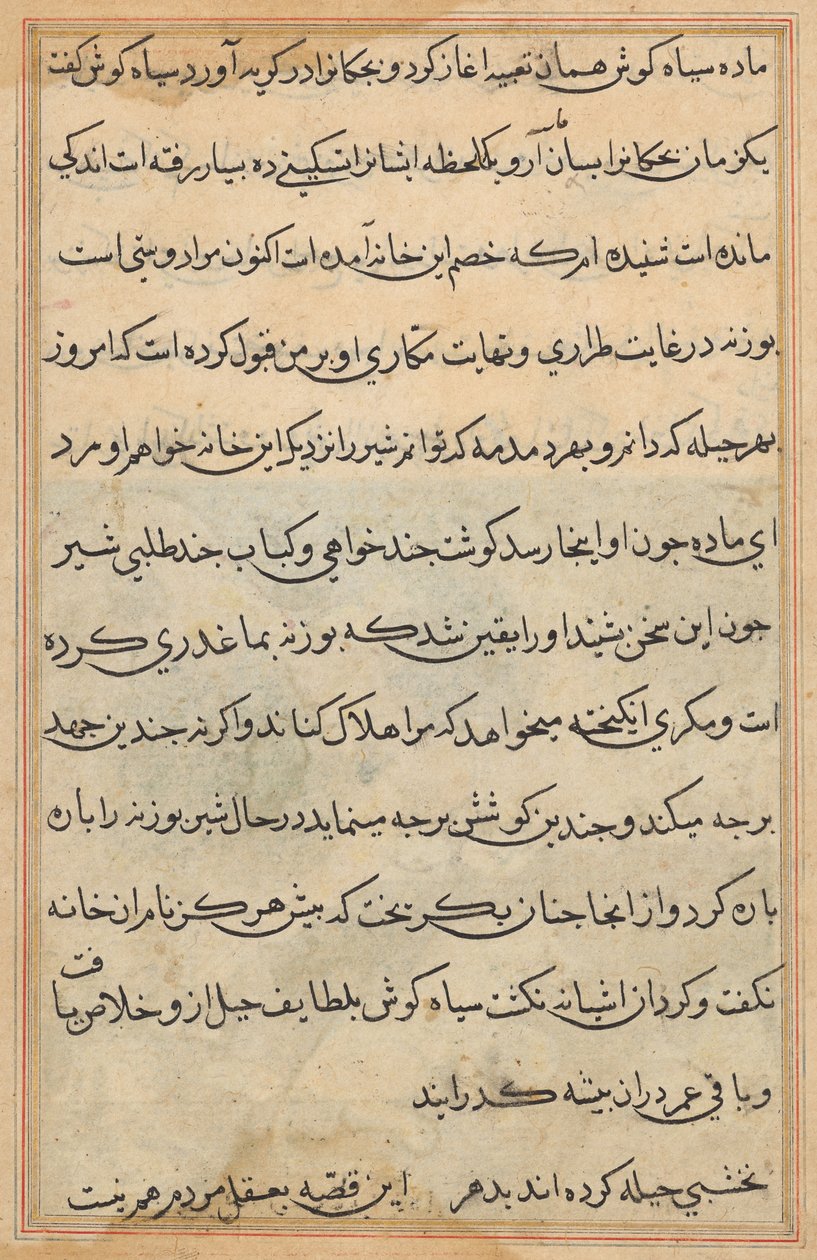 ماده سیاه کوش همان تعبیه اغاز کرد و بجکانرا در کریه آورد سیاه کوش کفت
یکزمان بجکانرا بسان آر و یکلحظه ایشانرا تسکینی ده بسیار رفته است اندکی
مانده است شنیده ام که خصم این خانه آمده است اکنون مرا دوستی است
بوزنه در غایت طراری و نهایت مکّاری او بر من قبول کرده است که امروز
بهر حیله که دانم و بهر دمدمه که توانم شیر را نزدیک این خانه خواهم اورد
ای ماده جون او اینجا رسد کوشت جند خواهی و کباب جند طلبی شیر
جون این سخن بشنید او را یقین شد که بوزنه بما غدری کرده
است و مکری انکیخته میخواهد که مرا هلاک کناند و اکرنه جندین جهد
بر جه میکند و جندین کوشش بر جه مینماید در حال شیر بوزنه را باره
باره کرد و از انجا جنان بکریخت که بیش هرکز نام ان خانه
نکفت و کرد ان اشیانه نکشت سیاه کوش بلطایف حیل ازو خلاص یافت
و باقی عمر در ان بیشه کدرایند
نخشبی حیله کرده اند بدهر این قصّه بعقل مردم هم نیست